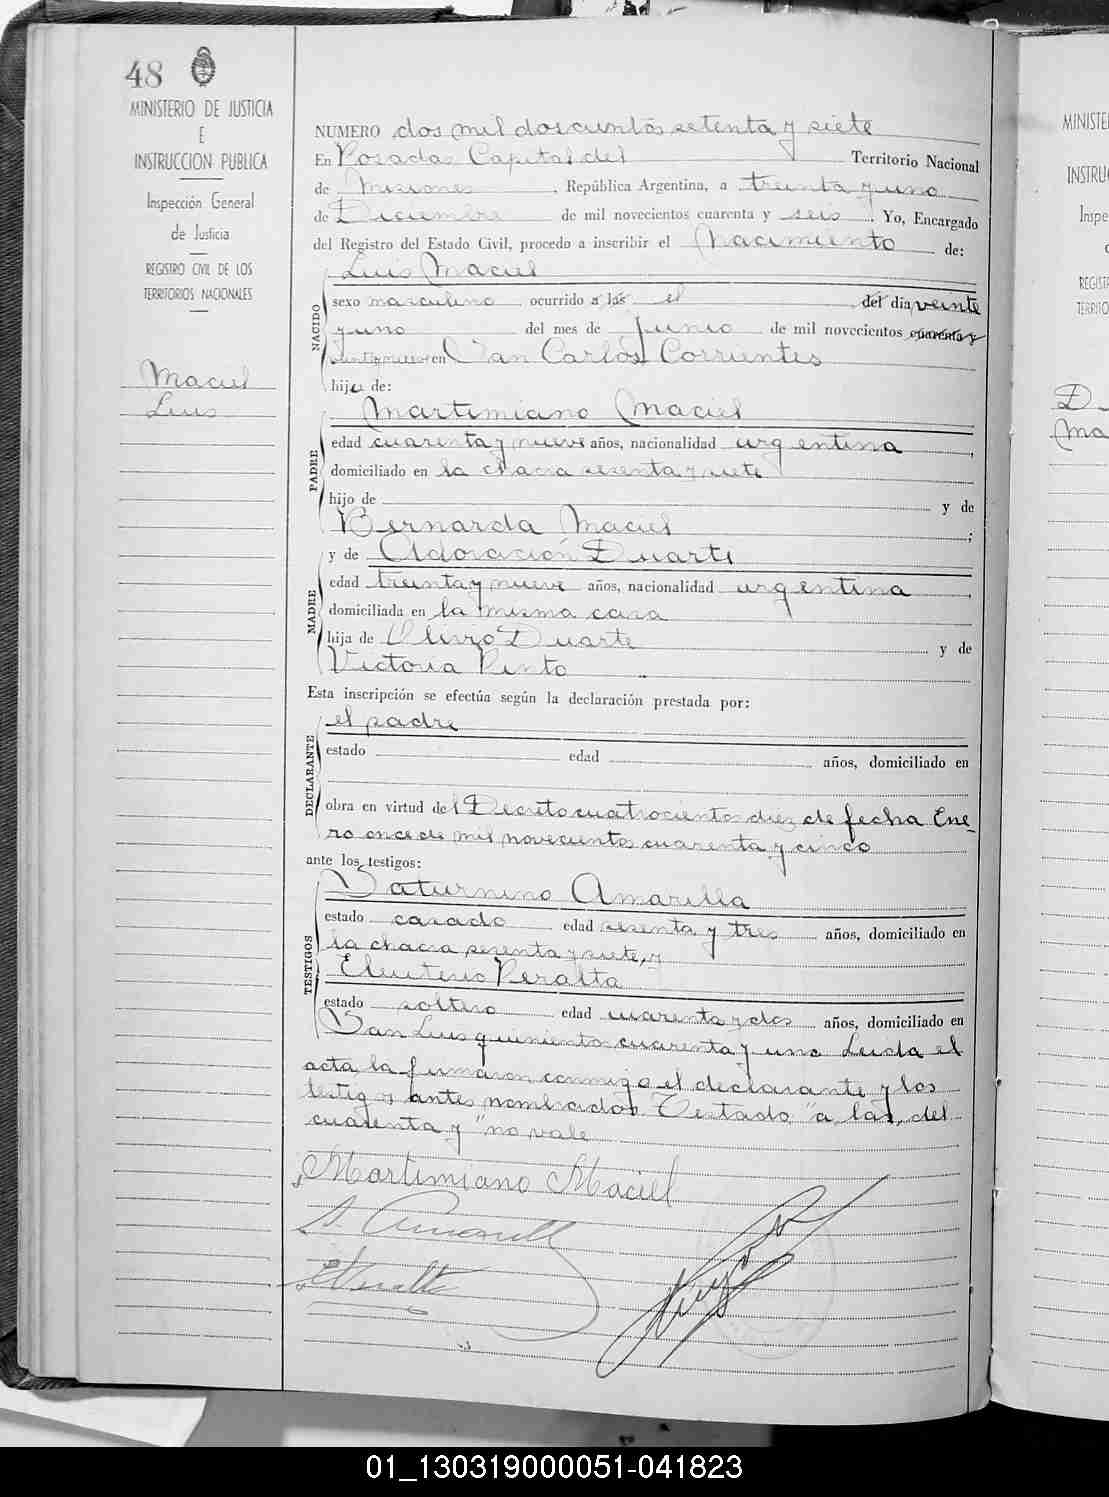 48
MINISTERIO DE JUSTICIA
E
INSTRUCCION PUBLICA
Inspección General
de Justicia
REGISTRO CIVIL DE LOS
TERRITORIOS NACIONALES
Maciel
Luis
NUMERO dos mil doscientos setenta y siete
En Posadas Capital del Territorio Nacional
de Misiones, República Argentina, a treinta y uno
de Diciembre de mil novecientos cuarenta y seis. Yo, Encargado
del Registro del Estado Civil, procedo a inscribir el Nacimiento de:
Luis Maciel
NACIDO
sexo masculino, ocurrido a las el del día veinte
y uno del mes de Junio de mil novecientos cuarenta y
veintinueve en San Carlos Corrientes
hijo de:
Martimiano Maciel
PADRE
edad cuarenta y nueve años, nacionalidad argentina,
domiciliado en la chacra sesenta y siete
hijo de y de
Bernarda Maciel;
y de Adoración Duarte
MADRE
edad treinta y nueve años, nacionalidad argentina,
domiciliada en la misma casa
hija de Duarte y de
Victoria Pinto
Esta inscripción se efectúa según la declaración prestada por:
el padre
DECLARANTE
estado edad años, domiciliado en
obra en virtud del Decreto cuatrocientos diez de fecha Ene
ro once de mil novecientos cuarenta y cinco
ante los testigos:
Saturnino Amarilla
TESTIGOS
estado casado edad sesenta y tres años, domiciliado en
la chacra sesenta y siete, y
Eleuterio Peralta
estado soltero edad cuarenta y dos años, domiciliado en
San Luis quinientos cuarenta y uno Leida el
acta la firmaron conmigo el declarante y los
testigos antes nombrados. Testado "a las, del
cuarenta y" no vale
Martimiano Maciel
S. Amarilla
E Peralta
MINISTE
INSTRU
Inspe
REGIST
TERRITO
01_130319000051-041823